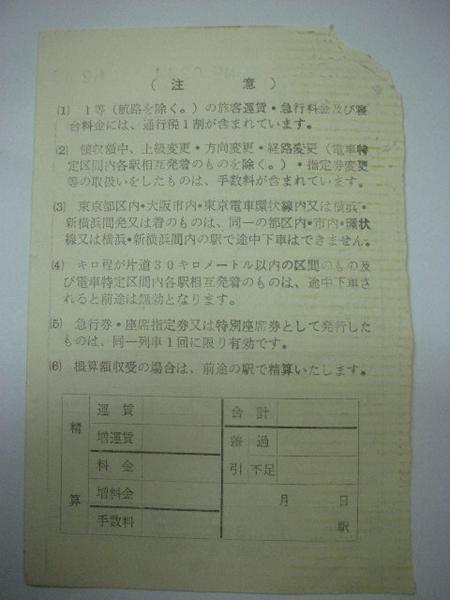 (注意)
(1) 1等(航路を除く。)の旅客運賃・急行料金及び寝
台料金には、通行税1割が含まれています。
(2) 領収額中、上級変更・方向変更・経路変更(電車特
定区間内各駅相互発着のものを除く。)・指定券変更
等の取扱いをしたものは、手数料が含まれています。
(3) 東京都区内・大阪市内・東京電車環状線内又は横浜・
新横浜間発又は着のものは、同一の都区内・市内・環状
線又は横浜・新横浜間内の駅で途中下車はできません。
(4) キロ程が片道30キロメートル以内の区間のもの及
び電車特定区間内各駅相互発着のものは、途中下車さ
れると前途は無効となります。
(5) 急行券・座席指定券又は特別座席券として発行した
ものは、同一列車1回に限り有効です。
(6) 概算額収受の場合は、前途の駅で精算いたします。
精算
運賃
増運賃
料金
増料金
手数料
合計
差引
過
不足
月 日
駅